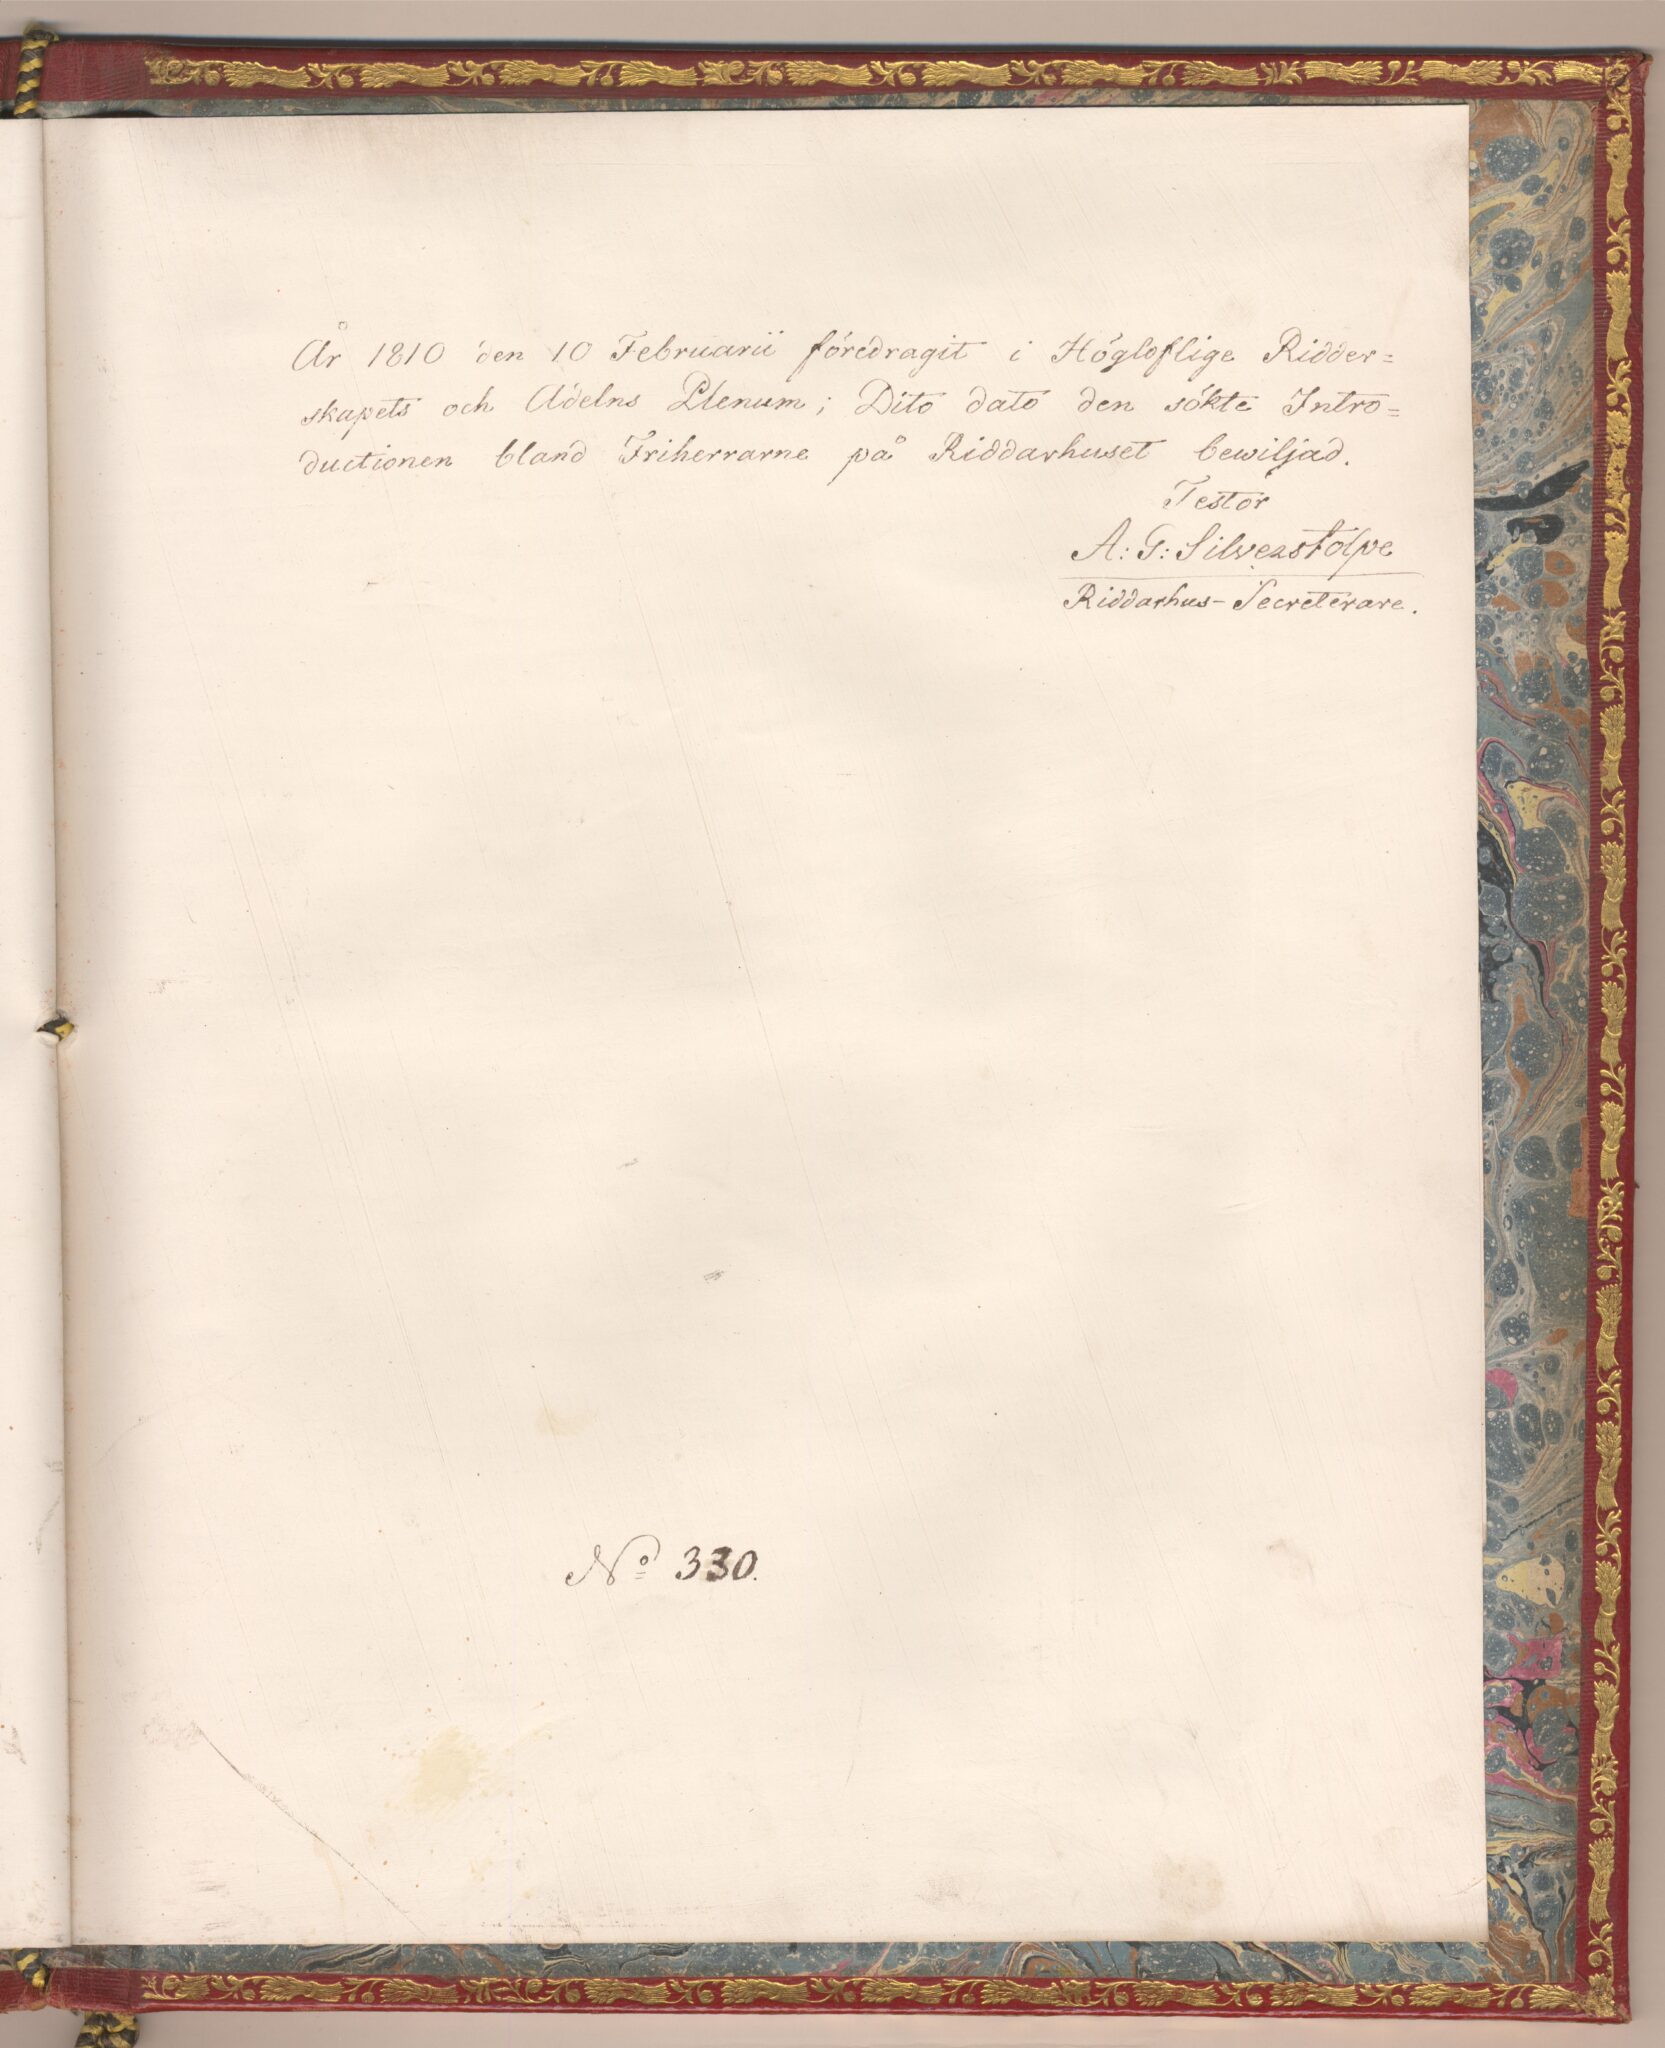 År 1810 den 10 Februarii föredragit i Högloflige Ridder=
skapets och Adelns Plenum; Dito dato den sökte Intro=
ductionen bland Friherrarne på Riddarhuset bewiljad.
Testor
A: G: Silverstolpe
Riddarhus-Secreterare.
No 330.